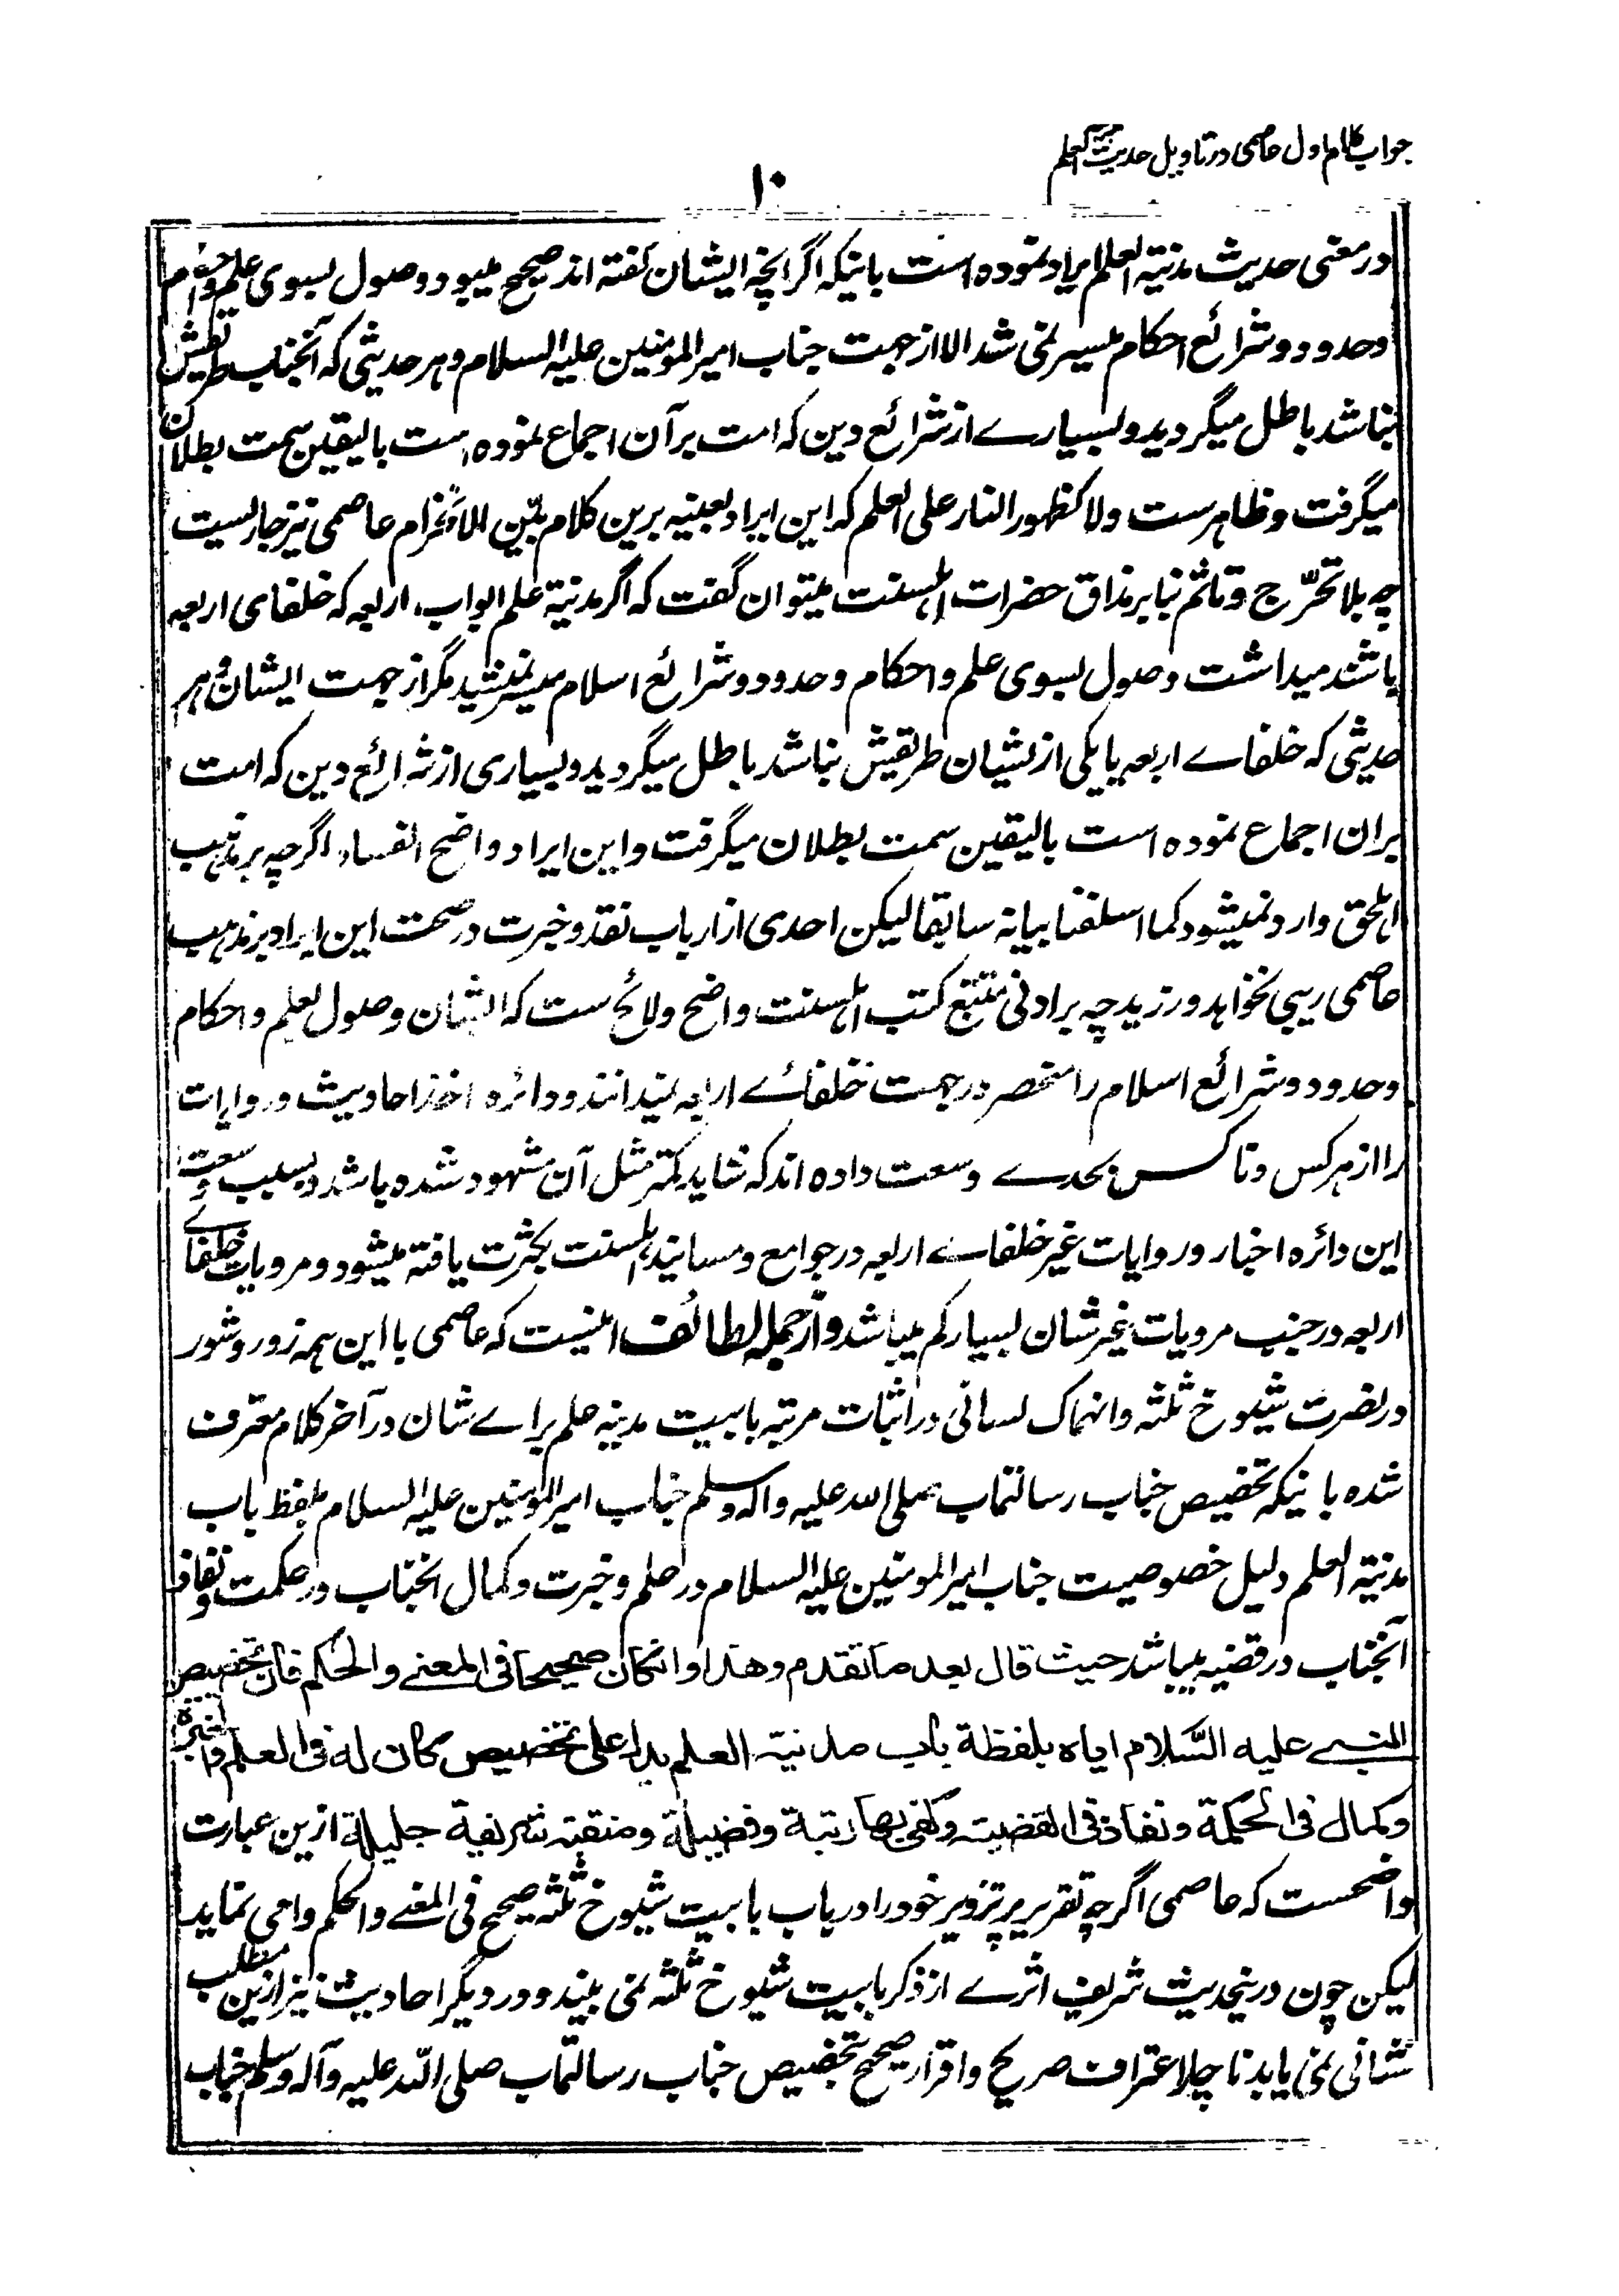 جواب کلام اول عاصمی در تاویل حدیث مدینة العلم
۱۰
در معنی حدیث مدنیته العلم ایراد نموده است بانیکه اگر انچه ایشان گفته اند صحیح میبود وصول بسوی علم و احکام
وحدود و شرائع احکام میسر نمی شد الا از جهت جناب امیر المومنین علیه السلام و هر حدیثی که آنجناب طریقش
نباشد باطل میگردید و بسیارے از شرائع دین که امت بر آن اجماع نموده است بالیقین سمت بطلان
میگرفت و ظاهرست ولا کظهور النار علی العلم که این ایراد بعینه برین کلام بیّن الانخرام عاصمی نیز جاریست
چه بلا تحرّج و تاثم بنا بر مذاق حضرات اهلسنت میتوان گفت که اگر مدنیة علم ابواب اربعه که خلفای اربعه
باشند میداشت وصول بسوی علم و احکام و حدود و شرائع اسلام میسر نمیشد مگر از جهت ایشان و هر
حدیثی که خلفاے اربعه یا یکی از یشان طریقش نباشد باطل میگردید و بسیاری از شرائع دین که امت
بران اجماع نموده است بالیقین سمت بطلان میگرفت و این ایراد واضح الفساد اگر چه بر مذهب
اهلحق وارد نمیشود کما اسلفنا بیانه سابقا لیکن احدی از ارباب نقد و خبرت در صحت این ایراد بر مذهب
عاصمی ریبی نخواهد ورزید چه بر ادنی متتبع کتب اهلسنت واضح و لائح ست که ایشان وصول بعلم و احکام
وحدود و شرائع اسلام را منحصر در جهت خلفاے اربعه نمیدانند و دائره اخذ احادیث و روایات
را از هر کس و ناکس بحدے وسعت داده اند که شاید کمتر مثل آن مشهود شده باشد و بسبب وسعت
این دائره اخبار و روایات غیر خلفاے اربعه در جوامع و مسانید اهلسنت بکثرت یافته میشود و مرویات خلفاے
اربعه در جنب مرویات غیرشان بسیار کم میباشد و از جمله لطائف اینست که عاصمی با این همه زور و شور
در نصرت شیوخ ثلثه و انهماک لسانی در اثبات مرتبه بابیت مدینه علم براے شان در آخر کلام معترف
شده بانیکه تخصیص جناب رسالتماب صلی الله علیه و اله وسلم جناب امیر المومنین علیه السلام بلفظ باب
مدنیته العلم دلیل خصوصیت جناب امیر المومنین علیه السلام در علم و خبرت و کمال انجناب در حکمت و نفاذ
آنجناب در قضیه میباشد حیث قال بعد ما تقدم وهذا وان کان صحیحا فی المعنے والحکم فان تخصیص
النبے علیه السّلام ایاه بلفظة باب مدنیة العلم یدل علی تخصیص کان له فی العلم والخبرة
وکمال فی الحکمة ونفاذ فی القضیة وکفی بها رتبة وفضیلة ومنقبة شریفة جلیلة ازین عبارت
واضحست که عاصمی اگر چه تقریر پر تزویر خود را در باب بابیت شیوخ ثلثه صحیح فی المعنے و الحکم وا می نماید
لیکن چون درینحدیث شریف اثرے از ذکر بابیت شیوخ ثلثه نمی بیند و در دیگر احادیث نیز ازین مطلب
نشانی نمی یابد ناچار اعتراف صریح و اقرار صحیح بتخصیص جناب رسالتماب صلی الله علیه وآله وسلم جناب